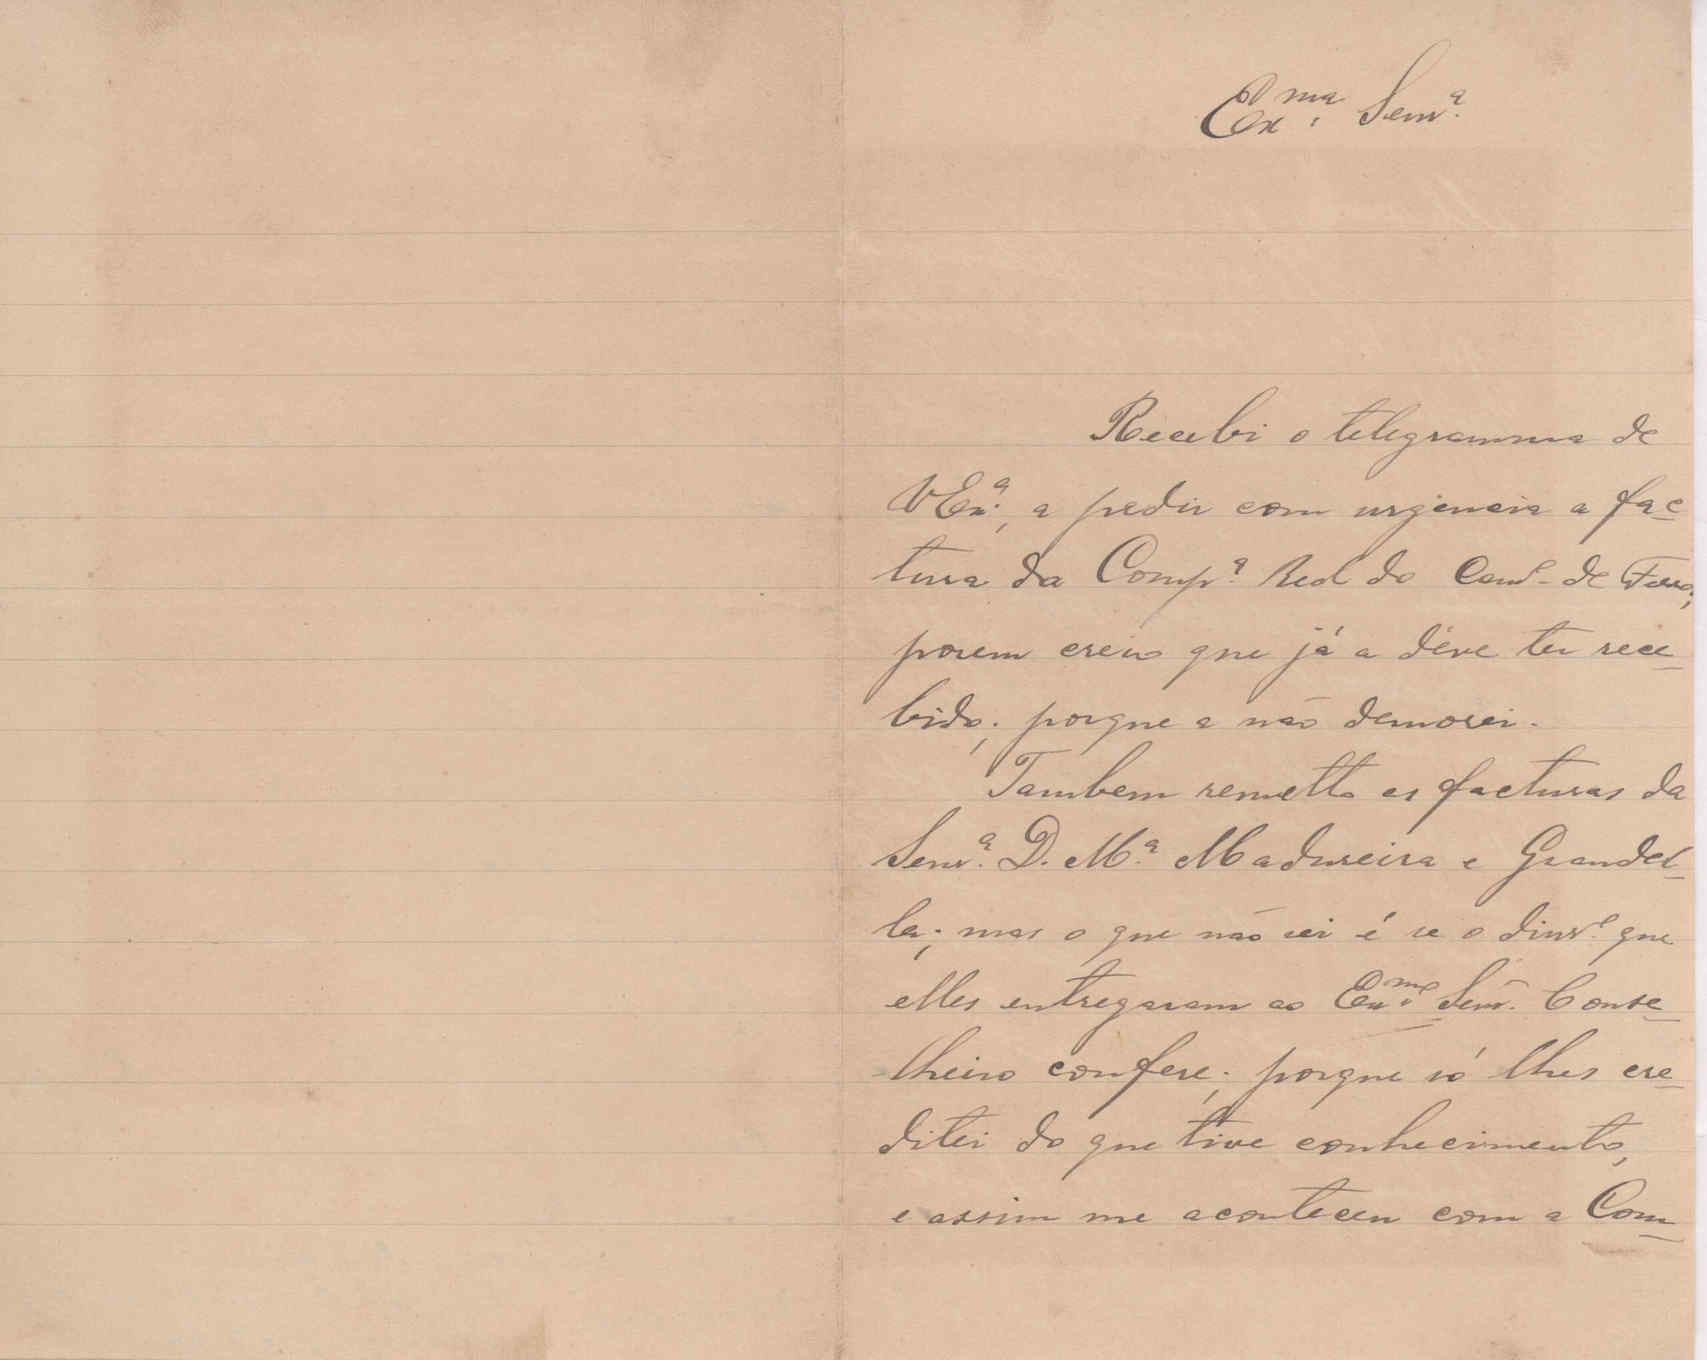 Exma. Senra.
Recebi o telegramma de
VExa., a pedir com urgencia a fac-
tura da Compa. Real do Camo. de Ferro;
porem creio que já a déve ter rece-
bido; porque a não demorei.
Tambem remetto as facturas da
Senra. D. Ma. Madureira e Grandel-
la; mas o que não sei é se o dinro. que
elles entregaram ao Exmo. Senr. Conse-
lheiro confere; porque só lhes cre-
ditei do que tive conhecimento,
e assim me aconteceu com a Com-